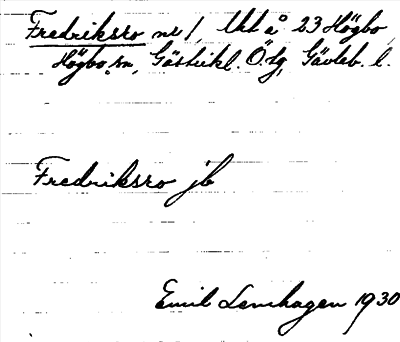 Fredriksro nr 1, lht å 23 Högbo,
Högbo sn, Gästrikl. Ö. tg, Gävleb. l.
Fredriksro jb
Emil Lenhagen 1930